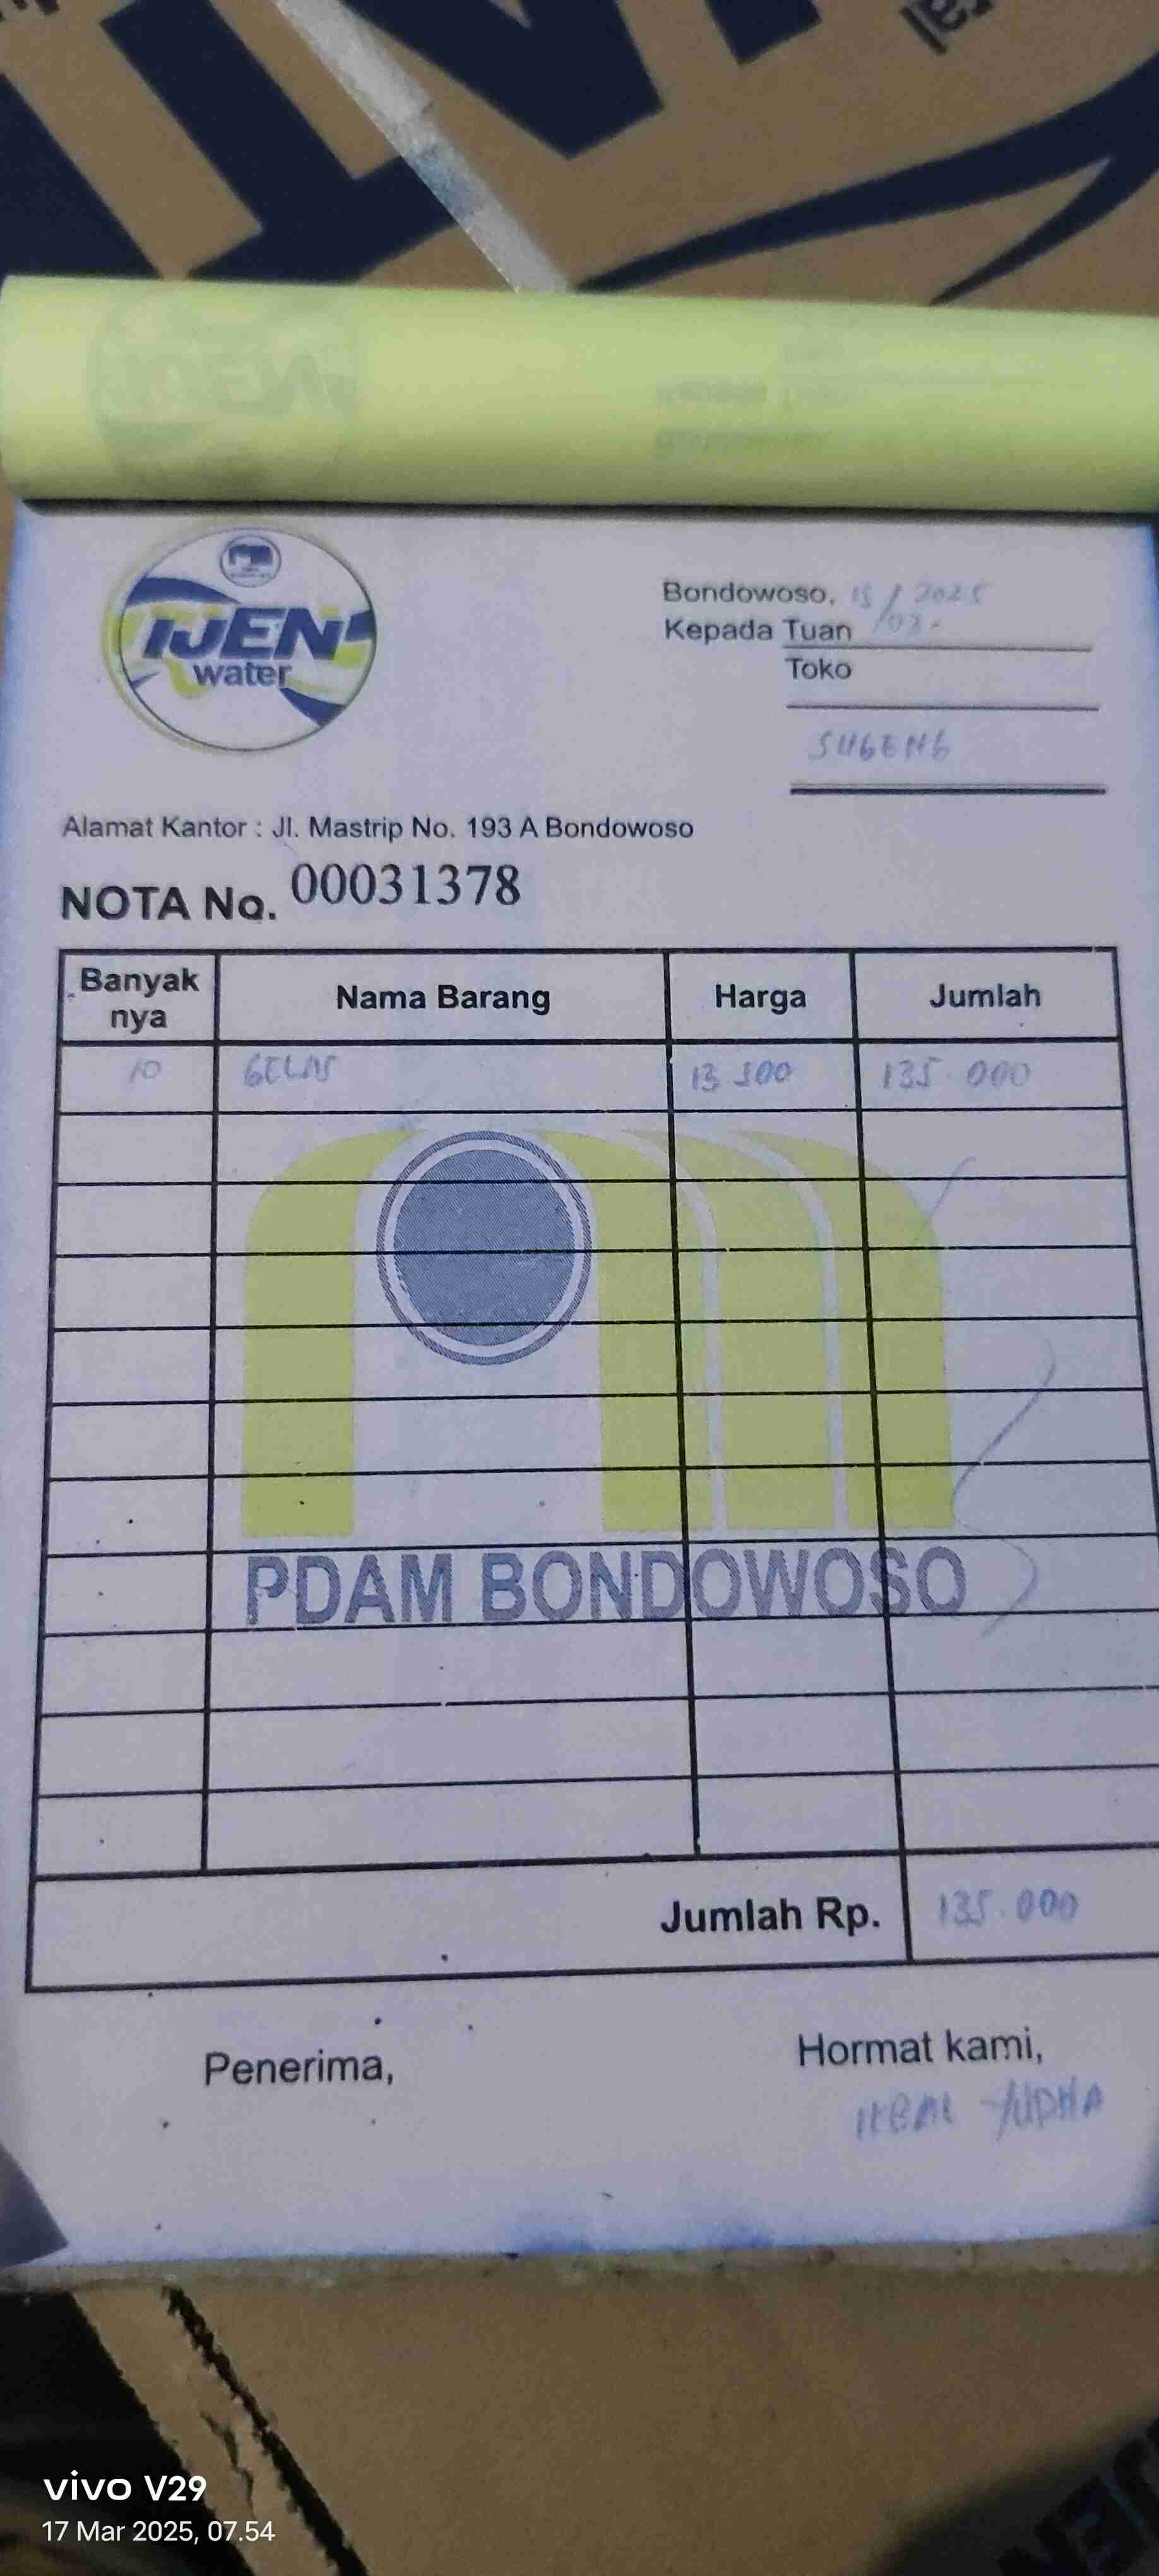 IJEN
water
Bondowoso, 15/03-2025
Kepada Tuan
Toko
SUGENG
Alamat Kantor : Jl. Mastrip No. 193 A Bondowoso
NOTA No. 00031378
Banyak nya Nama Barang Harga Jumlah
10 GELAS 13 500 135.000
PDAM BONDOWOSO
Jumlah Rp. 135.000
Penerima, Hormat kami,
vivo V29
17 Mar 2025, 07.54